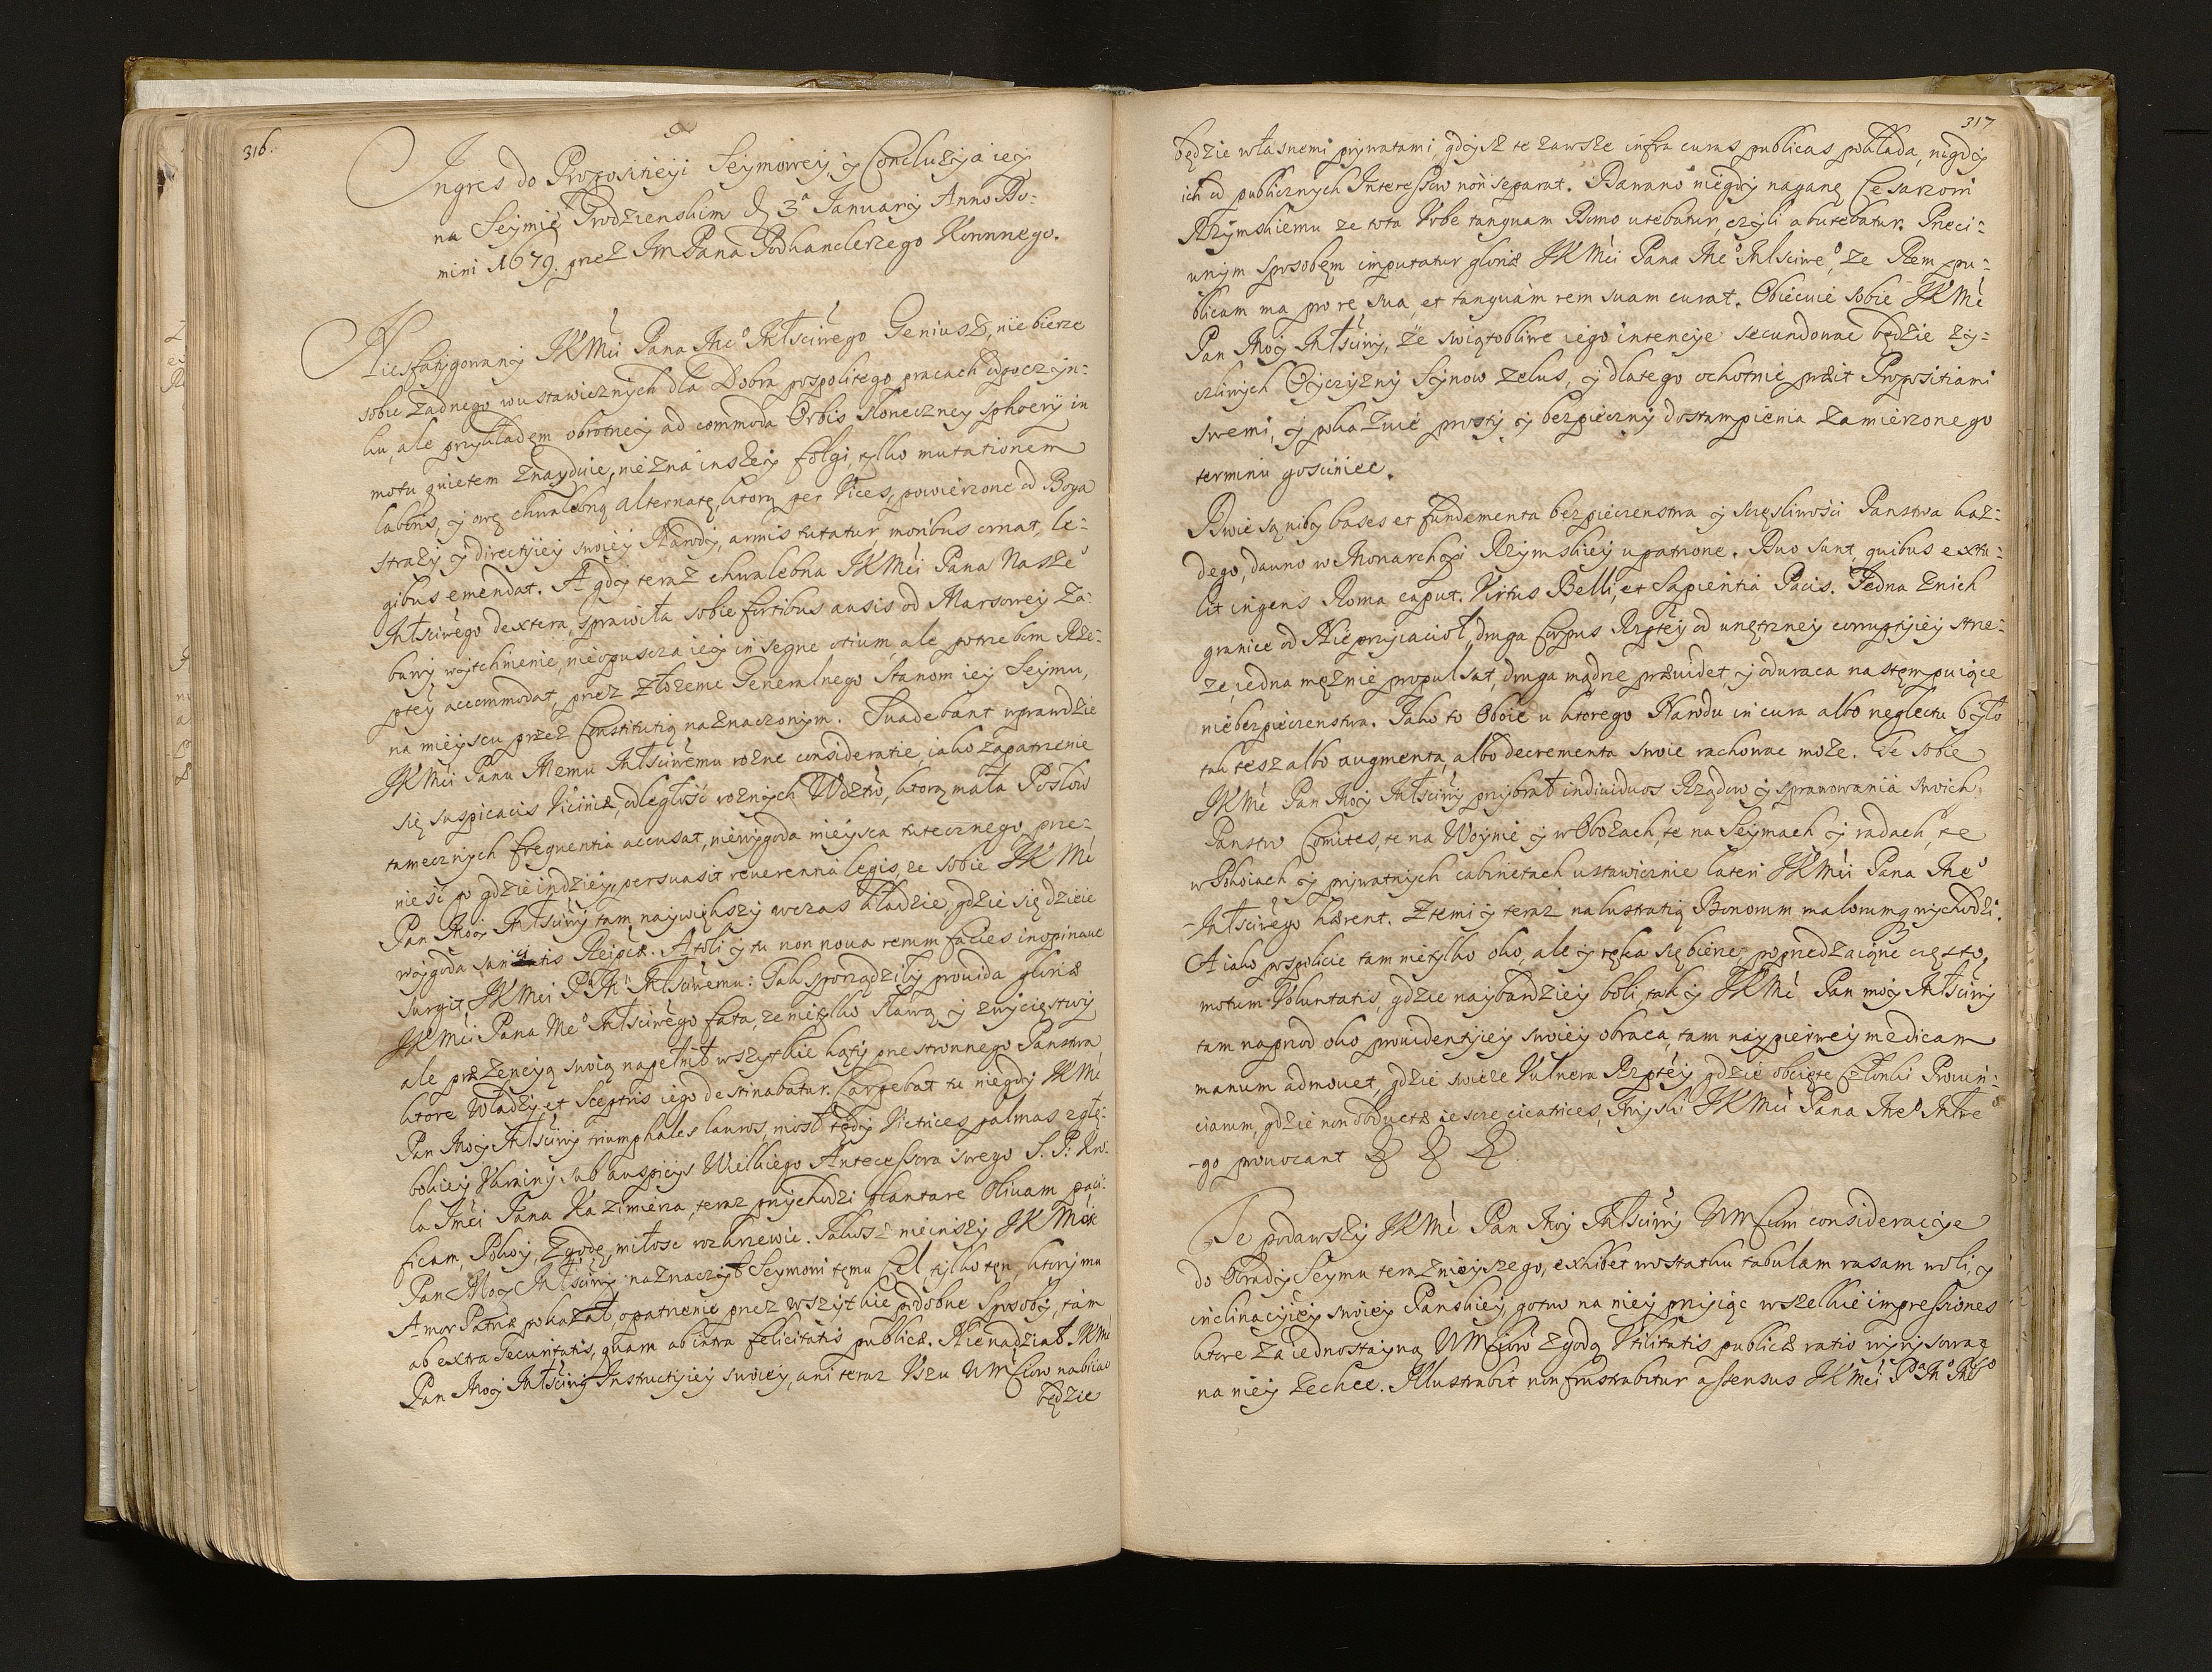 316.
Ingres do Propositiei Seymowey, y Concluzÿa iey
na Seÿmie Grodzienskim D. 3ª Januarÿ Anno Do-
mini 1679. przez JmPana Podkanclerzego Koronnego.
Niesfatÿgowanÿ JKMći Pana Meº Młsciwego Geniusz, nie bierze
sobie zadnego w ustawicznych dla Dobra pospolitego pracach odpoczÿn-
ku, ale przykładęm obrotneÿ ad commoda Orbis słoneczney sphoery in
motu quietem znayduie, nie zna inszey folgi, tylko mutationem
laboris, ÿ owę chwalebną alternatę, ktorą per Vices, powierzone od Boga
straży ÿ directÿiey swoiey Narodÿ, armis tutatur, moribus ornat, le-
gibus emendat. A gdÿ teraz chwalebna JKMći Pana Naszeº
Młsciwego dextera, sprawiła sobie fortibus ausis od Marsowey za-
bawÿ wÿtchnienie, nieopuszcza ieÿ in segne otium, ale potrzebom Rze-
ptey accommodat, przez złozenie Generalnego Stanom iey Seymu,
na mieyscu przez Constitutią naznaczonÿm. Suadebant wprawdzie
JKMći Panu Memu Młsciwemu rozne consideratie, iako zapatrzenie
się suspicacis Viciniæ, odległość roznych Wdztw, ktorą mała Posłow
tamecznych frequentia accusat, niewÿgoda mieysca tutecznego, prze-
nieść go gdzieindziey, persuasit reverentia legis, ze sobie JKMć
Pan Moÿ Młsciwÿ tam naÿwiększÿ wczas kładzie, gdzie się dzieie
wÿgoda sanitatis Reipcæ. Atoli ÿ tu non nova rerum facies inopinave
surgit JKMći Pª Mº Młsciwemu: Tak sporządziłÿ provida gloriæ
JKMći Pana Meº Młsciwego fata, ze nietÿlko sławą ÿ zwÿcięstwÿ
ale præzencÿą swoią napełnił wszytkie kątÿ przestronnego Panstwa
ktore Władzÿ et Sceptris iego destinabatur. Carpebat tu niegdÿ JKMć
Pan Moÿ Młsciwÿ triumphales lauros, niosł tędÿ Victrices palmas z głę-
bokieÿ Ukrainÿ sub auspicÿs Wielkiego Antecessora swego S. P. Kro-
la Jmći Pana Kazimierza, teraz przychodzi plantare Olivam paci-
ficam, Pokoy, Zgodę, miłosc rozkrzewic. Jakosz nieinszÿ JKMć
Pan Moÿ Młsciwÿ naznaczÿł Seymowi temu Cel, tÿlko tęn, ktory mu
Amor Patriæ pokazał, opatrzenie przez wszÿtkie podobne Sposobÿ, tam
ab extra Securitatis, quam ab intra felicitatis publicæ. Nienadział JKMć
Pan Moÿ Młsciwÿ Instructÿiey swoieÿ, ani teraz Uszu WMĆiow nabiiac
będzie
317
będzie własnemi prÿwatami, gdÿsz te zawsze infra curas publicas pokłada, nigdÿ
ich od publicznych Interessow non separat. Dawano niegdÿ naganę Cesarzom
Rzÿmskiemu ze tota Urbe tanquam Domo utebatur, czÿli abutebatur. Przeci-
wnÿm sposobęm imputatur gloriæ JKMći Pana Meº Młsciweº, ze Rem pu-
blicam ma pro re sua, et tanquam rem suam curat. Obiecuie sobie JKMć
Pan Moÿ Młsciwÿ, ze swiątobliwe iego intencÿe secundowac będzie zÿ-
czliwÿch Oÿczÿznÿ Sÿnow zelus, ÿ dlatego ochotnie præit Propositiami
swemi, ÿ pokazuie prostÿ ÿ bezpiecznÿ dostąmpienia zamierzonego
terminu gosciniec.
Dwie są nibÿ bases et fundamenta bezpieczenstwa ÿ szczęsliwości Panstwa kaz-
dego, dawno w Monarchÿi Rzymskieÿ upatrzone. Duo sunt, quibus extu-
lit ingens Roma caput. Virtus Belli, et Sapientia Pacis. Jedna z nich
granice od Nieprzÿiacioł, druga Corpus Rzptey od wnętrzney corruptÿiey strze-
ze, iedna męznie propulsat, druga mądrze prævidet ÿ odwraca następuiące
niebezpieczenstwa. Jako to Oboie u ktorego Narodu in cura albo neglectu bÿło
tak tesz albo augmenta, albo decrementa swoie rachowac moze. Te sobie
JKMć Pan Moÿ Młsciwÿ przÿbrał individuos Rządow ÿ sprawowania swoich
Panstw Comites, te na Woÿnie ÿ w Obozach, te na Seymach ÿ radach, te
w Pokoiach ÿ prÿwatnÿch cabinetach ustawicznie lateri JKMći Pana Meº
Młsciwego hærent. Z temi ÿ teraz na lustratią Bonorum malorumq. wÿchodzi.
A iako pospolicie tam nietÿlko oko, ale ÿ ręka się bierze, poprzedzaiąc często,
motum Voluntatis, gdzie naÿbardzieÿ boli, tak ÿ JKMć Pan moÿ Młsciwÿ
tam naprzod oko providentÿieÿ swoiey obraca, tam naÿpierweÿ medicam
manum admovet, gdzie swieze Vulnera Rzptey, gdzie obcięte Członki Provin-
ciarum, gdzie non obductæ ieszcze cicatices, Mÿsli JKMći Pana Meº Młsº
-go provocant
Te podawszÿ JKMć Pan Moÿ Młsciwÿ WMĆiom consideracÿe
do Obradÿ Seymu teraznieÿszego, exhibet w ostatku tabulam rasam woli, ÿ
inclinacÿieÿ swoieÿ Panskieÿ, gotuw na niey przÿiąc wszelkie impressiones
ktore za iednostaÿną WMĆiow zgodą Utilitatis publicæ ratio wÿrÿsowac
na niey zechce. Illustrabit non frustrabitur assensus JKMći Pª Mº Młº